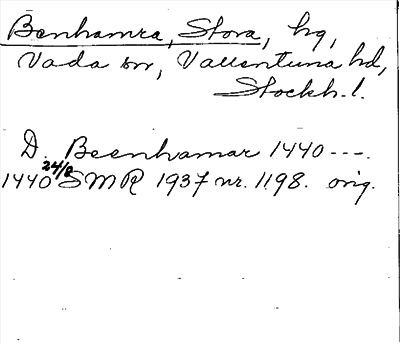 Benhamra, Stora, hg,
Vada sn, Vallentuna hd,
Stockh. l.
D. Beenhamar 1440 ---.
1440 24/8 SMR 1937 nr. 1198. orig.